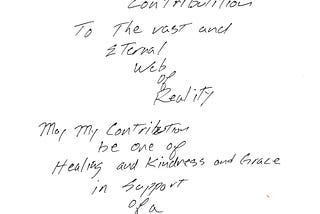 Contribution
To The vast and
Eternal
Web
of
Reality
May My Contribution
be one of
Healing and Kindness and Grace
in Support
of a